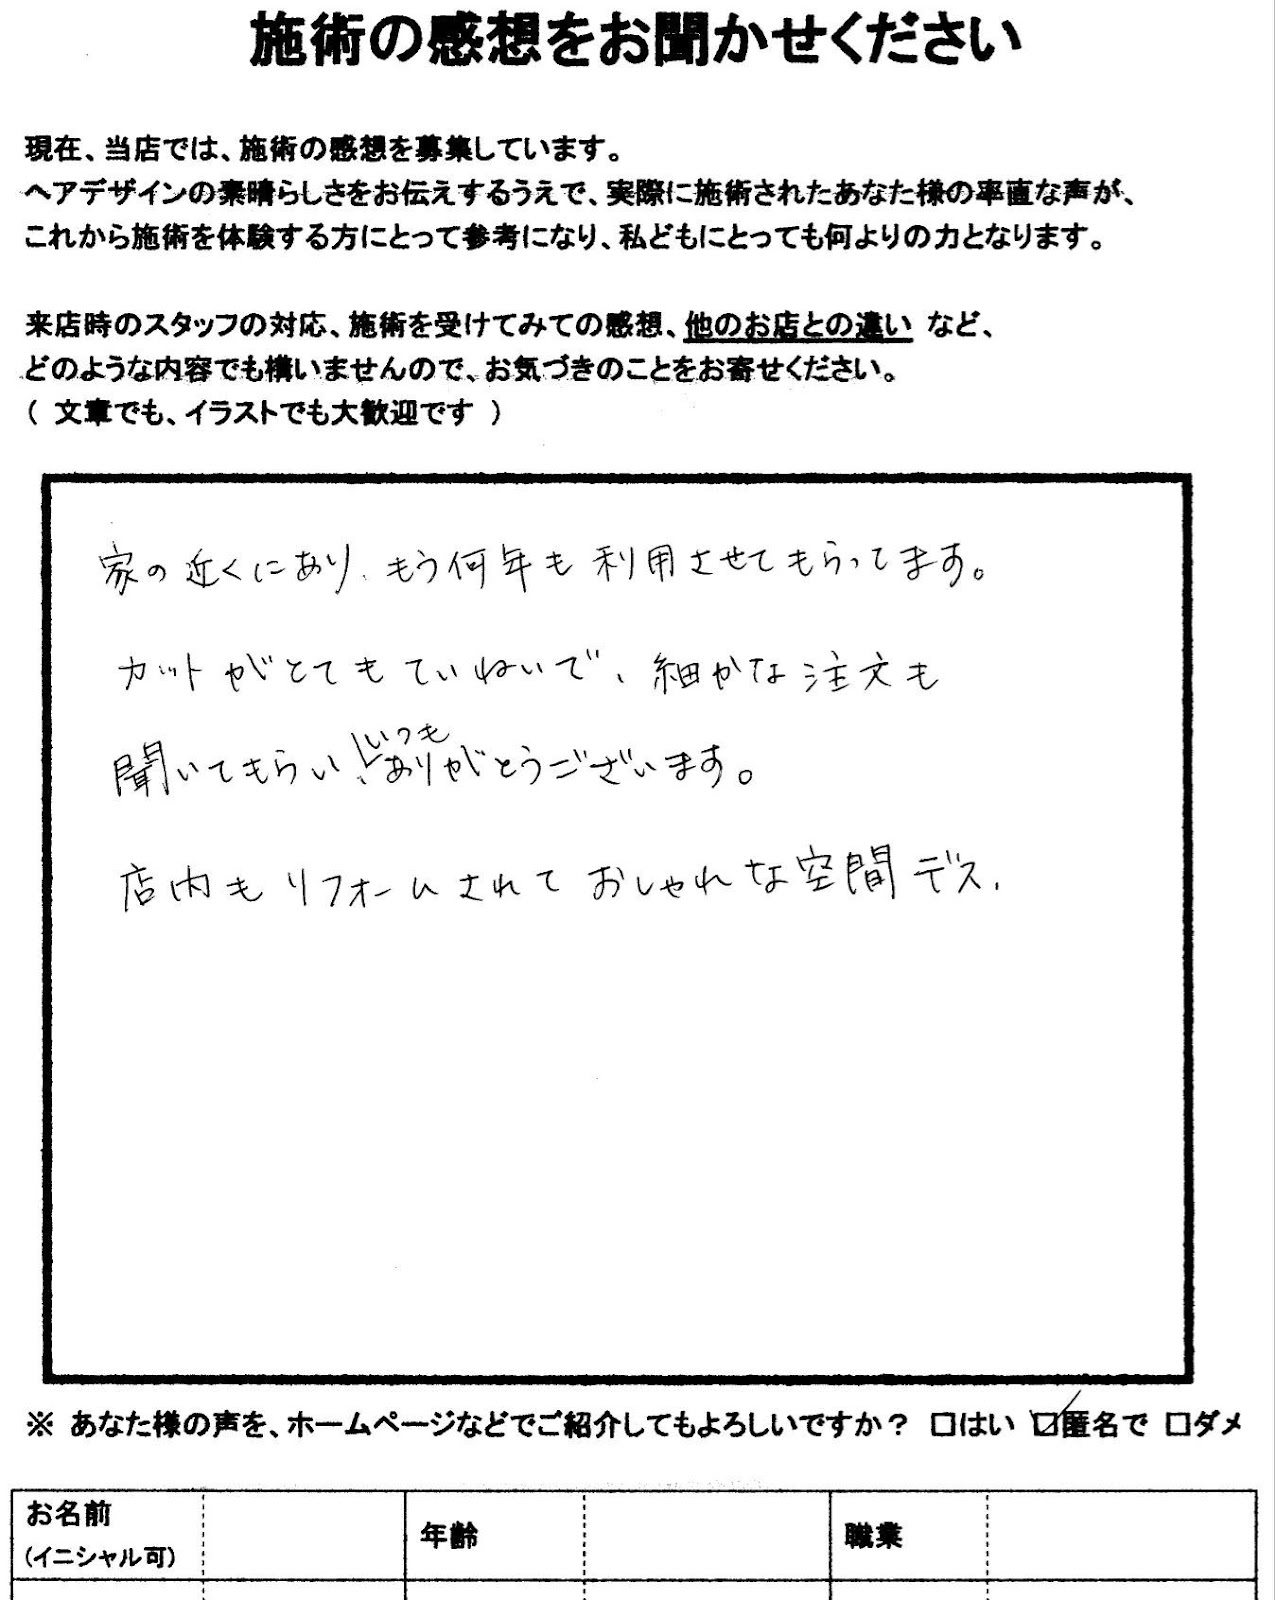 施術の感想をお聞かせください
現在、当店では、施術の感想を募集しています。
ヘアデザインの素晴らしさをお伝えするうえで、実際に施術されたあなた様の率直な声が、
これから施術を体験する方にとって参考になり、私どもにとっても何よりの力となります。
来店時のスタッフの対応、施術を受けてみての感想、他のお店との違い など、
どのような内容でも構いませんので、お気づきのことをお寄せください。
( 文章でも、イラストでも大歓迎です )
家の近くにあり、もう何年も利用させてもらってます。
カットがとてもていねいで、細かな注文も
聞いてもらい、いつもありがとうございます。
店内もリフォームされておしゃれな空間デス.
※ あなた様の声を、ホームページなどでご紹介してもよろしいですか? □はい ☑匿名で □ダメ
お名前 年齢 職業
(イニシャル可)